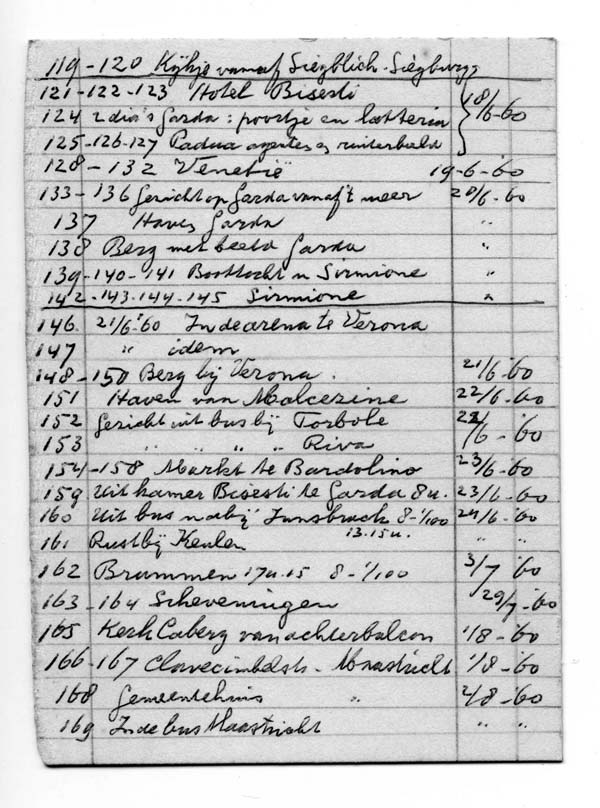 119-120 Kijkje vanaf Sieglich-Siegburg
121-122-123 Hotel Bisesti
124 2 dia's Garda: poortje en latteria 18/6-60
125-126-127 Padua agentes en ruiterbeeld
128-132 Venetië 19-6-60
133-136 Gezicht op Garda vanaf 't meer 20/6-60
137 Haven Garda "
138 Berg met beeld Garda "
139-140-141 Boottocht n Sirmione "
142-143-144-145 Sirmione "
146. 21/6-'60 In de arena te Verona
147 " idem
148-150 Berg bij Verona. 21/6-60
151 Haven van Malcezine 22/6-60
152 Gezicht uit bus bij Torbole 22/6-60
153 " " " " Riva
154-158 Markt te Bardolino 23/6-60
159 Uit kamer Bisesti te Garda 8 u. 23/6-60
160 Uit bus nabij Innsbruck 8-1/100 24/6-60
161 Rust bij Keulen 13.15 u. " "
162 Brummen 17u.15 8-1/100 3/7 '60
163-164 Scheveningen 29/7-60
165 Kerk Caberg van achterbalcon 1/8-60
166-167 Clavecimbelstr.- Maastricht 1/8-60
168 Gemeentehuis " 2/8-60
169 In de bus Maastricht " "